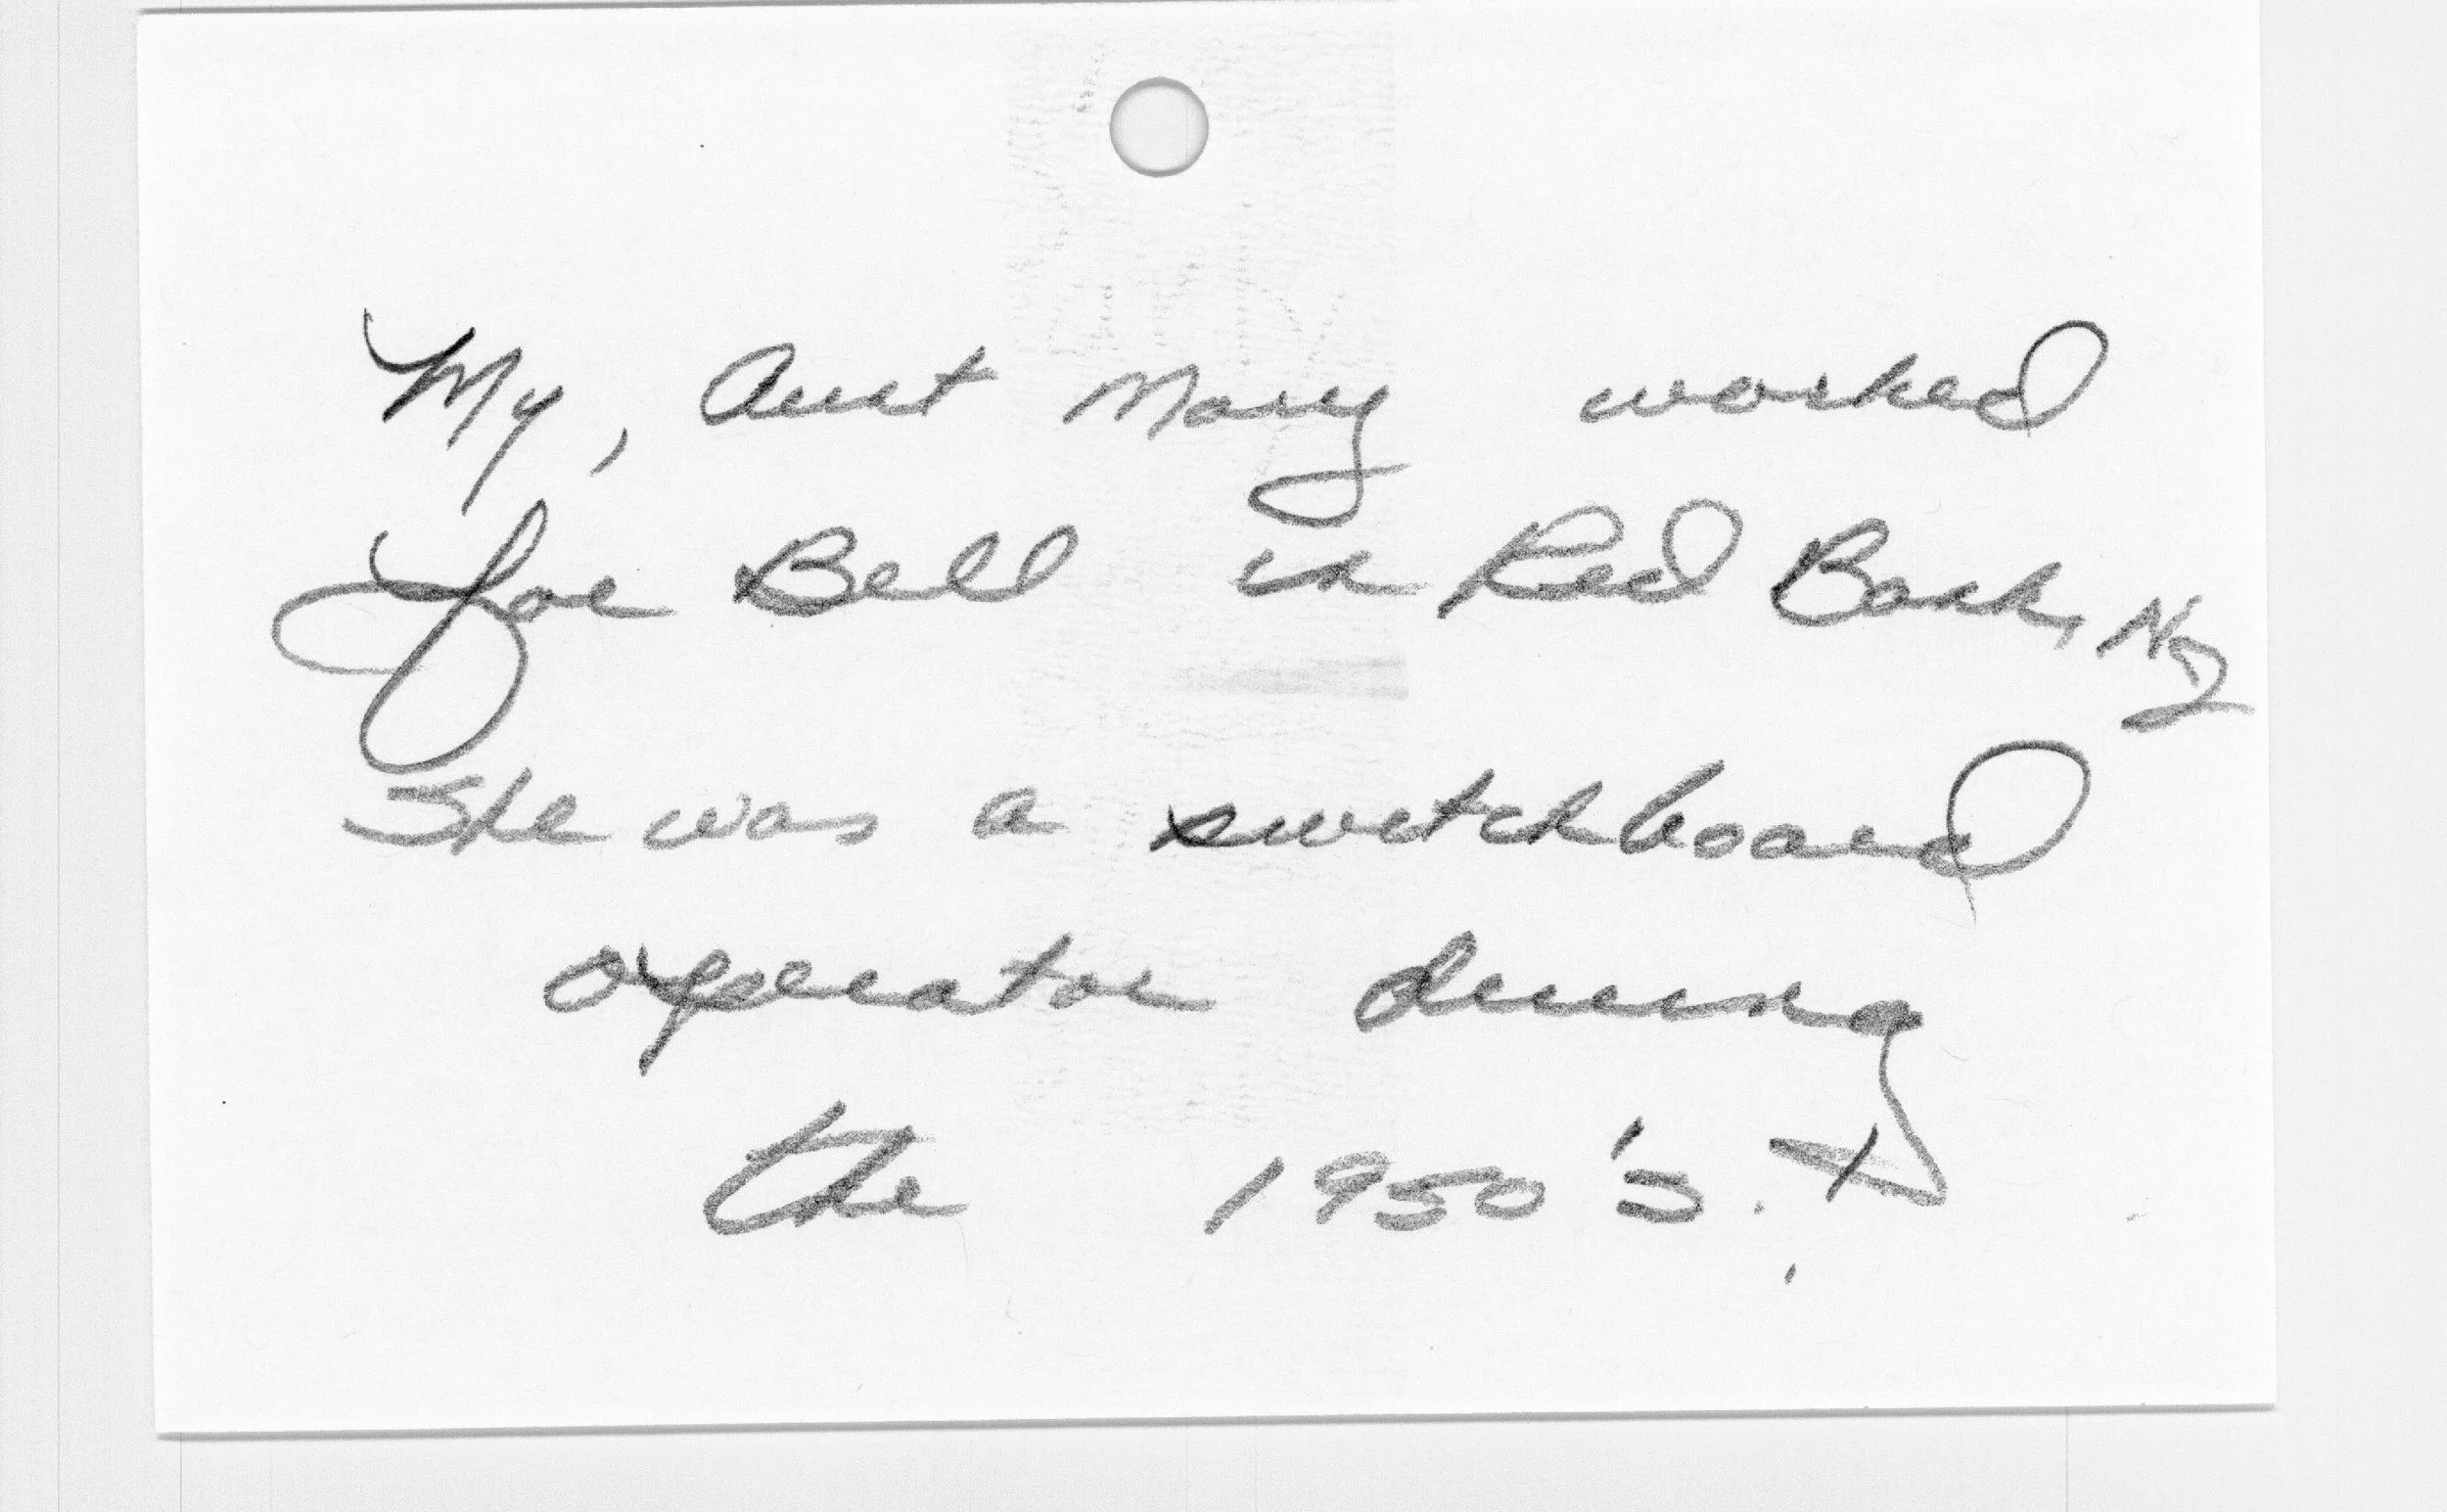 My, Aunt Mary worked
for Bell in Red Bank, NJ
She was a switchboard
operator during
the 1950's.